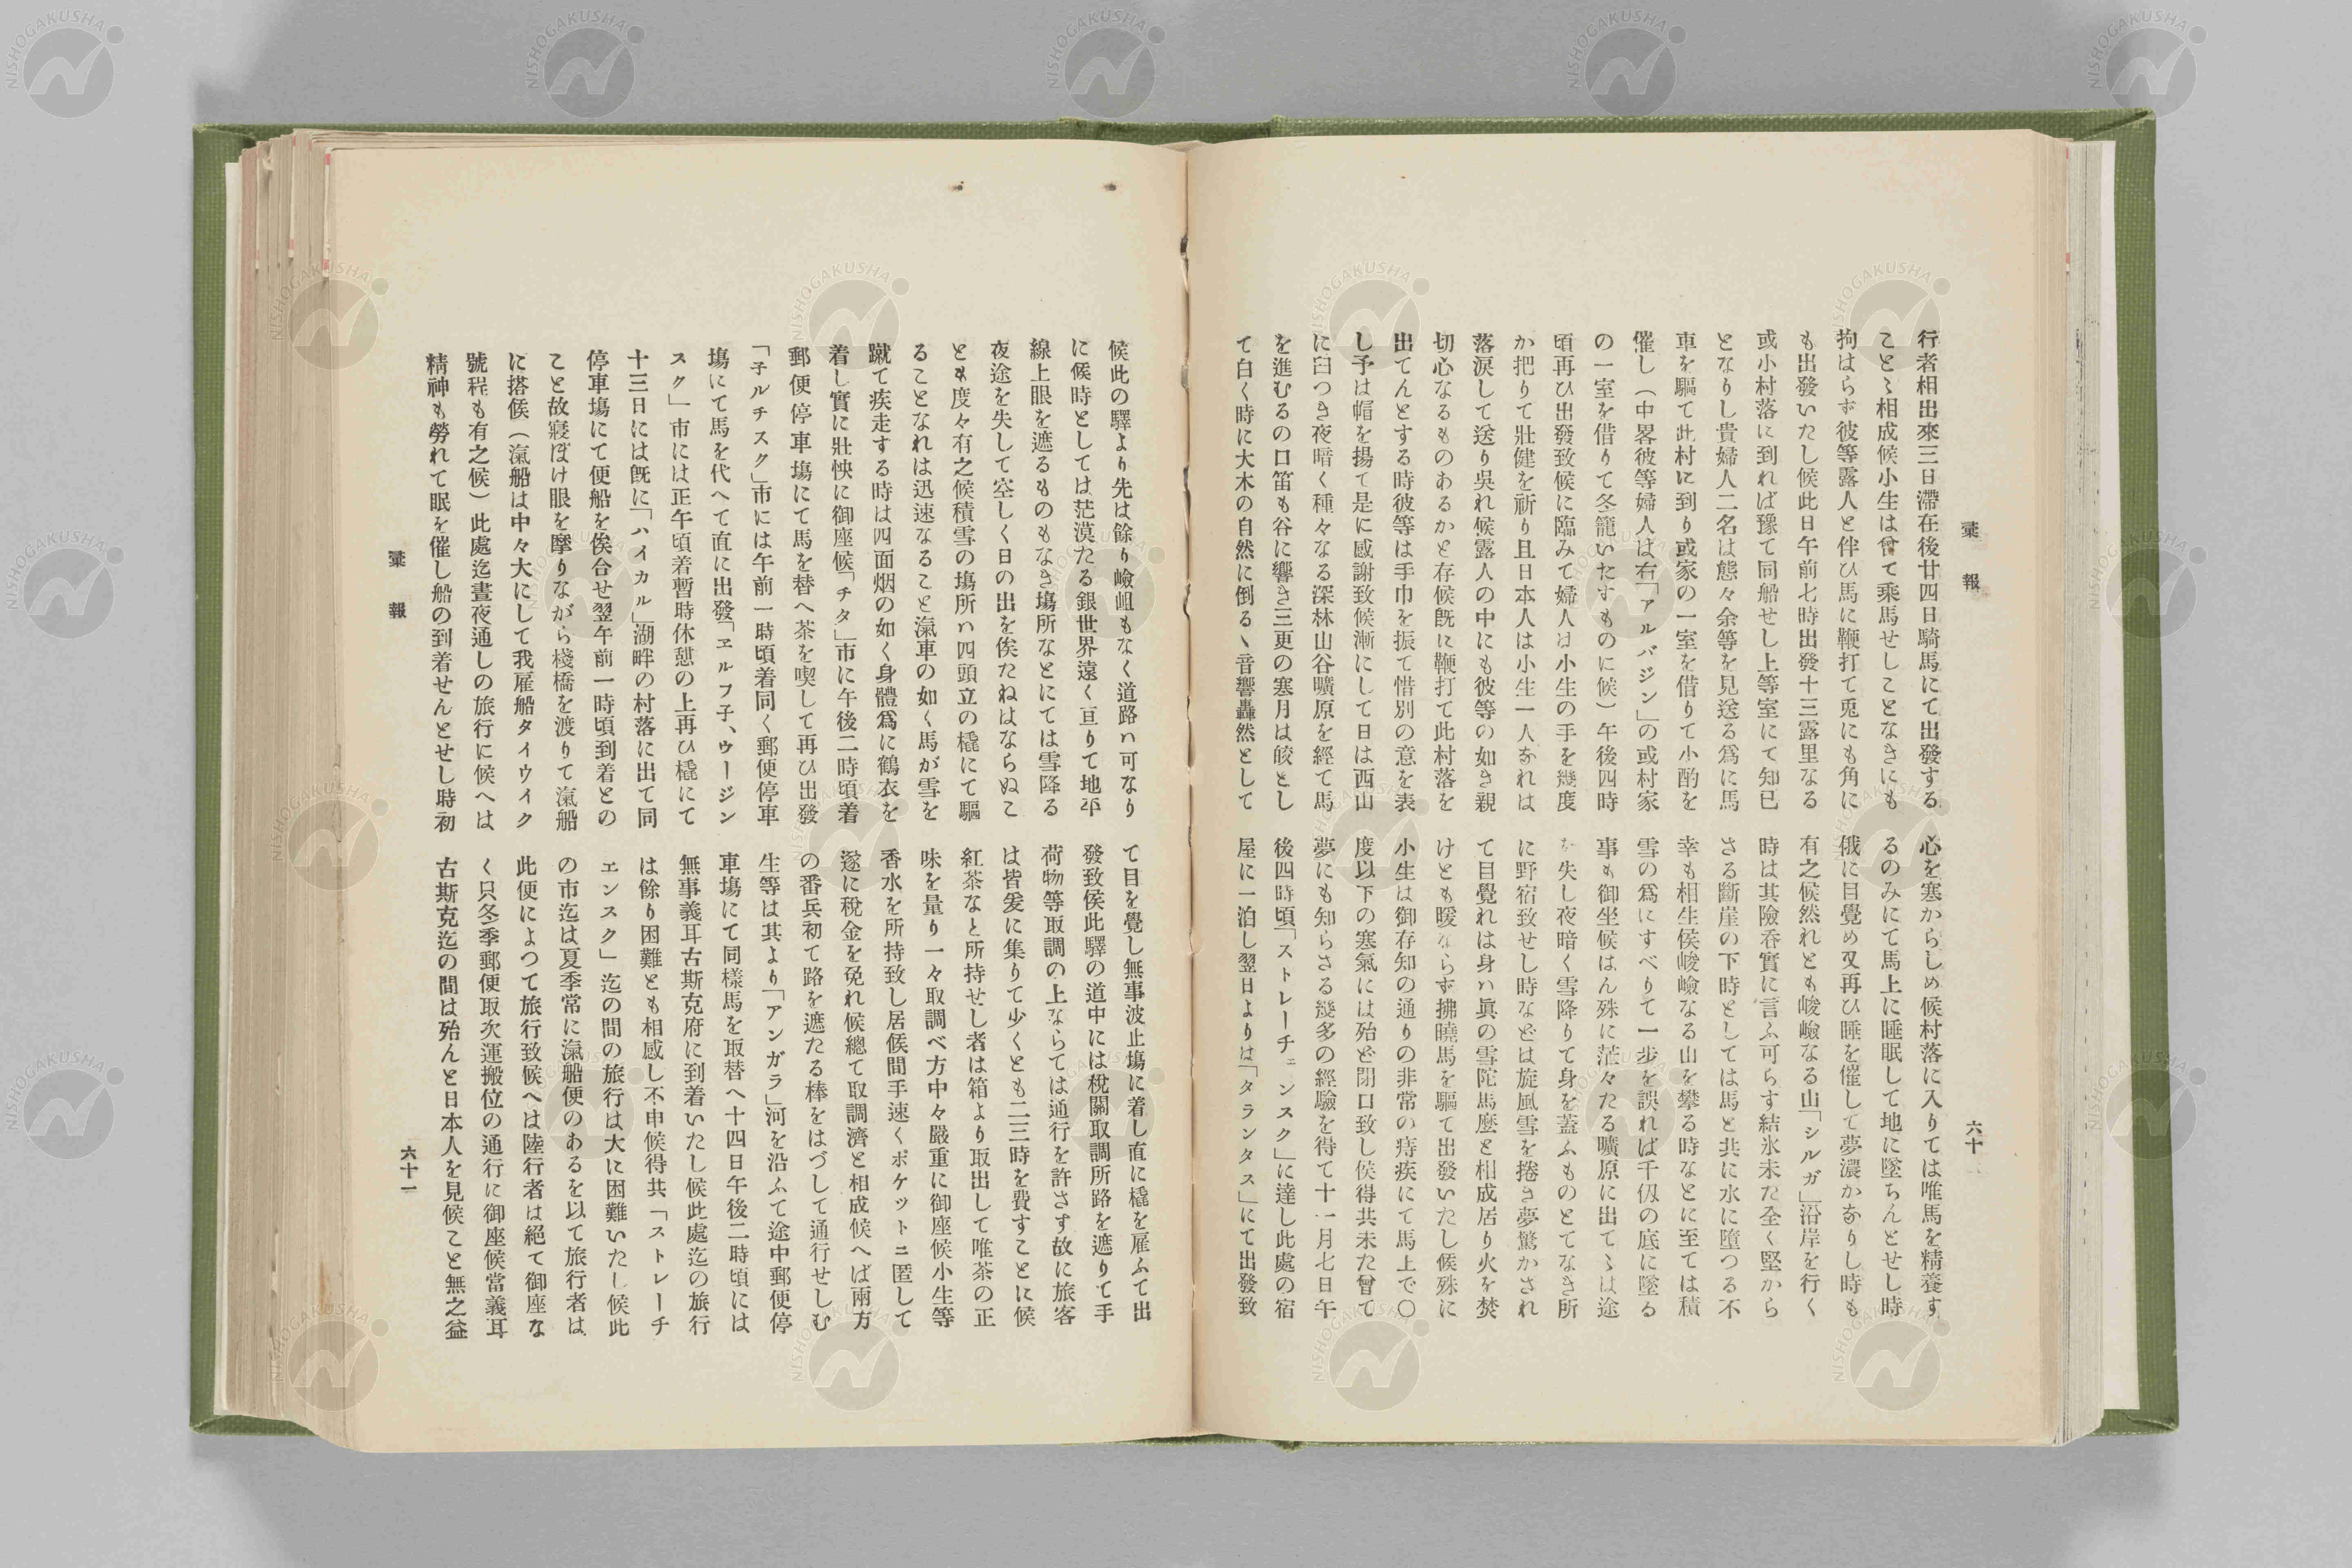 彙報
六十
行者相出來三日滯在後廿四日騎馬にて出發する
ことゝ相成候小生は曾て乘馬せしことなきにも
拘はらず彼等露人と伴ひ馬に鞭打て兎にも角に
も出發いたし候此日午前七時出發十三露里なる
或小村落に到れば豫て同船せし上等室にて知已
となりし貴婦人二名は態々余等を見送る爲に馬
車を驅て此村に到り或家の一室を借りて小酌を
催し（中畧彼等婦人は右「アルバジン」の或村家
の一室を借りて冬籠いたすものに候）午後四時
頃再ひ出發致候に臨みて婦人は小生の手を幾度
か把りて壯健を祈り且日本人は小生一人なれは
落涙して送り吳れ候露人の中にも彼等の如き親
切心なるものあるかと存候旣に鞭打て此村落を
出てんとする時彼等は手巾を振て惜別の意を表
し予は帽を揚て是に感謝致候漸にして日は西山
に臼つき夜暗く種々なる深林山谷曠原を經て馬
を進むるの口笛も谷に響き三更の寒月は皎とし
て白く時に大木の自然に倒るゝ音響轟然として
心を寒からしめ候村落に入りては唯馬を精養す
るのみにて馬上に睡眠して地に墜ちんとせし時
俄に目覺め又再ひ睡を催して夢濃かなりし時も
有之候然れとも峻嶮なる山「シルガ」沿岸を行く
時は其險呑實に言ふ可らす結氷未た全く堅から
さる斷崖の下時としては馬と共に水に墮つる不
幸も相生侯峻嶮なる山を攀る時なとに至ては積
雪の爲にすべりて一步を誤れば千仭の底に墜る
事も御坐候はん殊に茫々たる曠原に出てゝは途
を失し夜暗く雪降りて身を蓋ふものとてなき所
に野宿致せし時などは旋風雪を捲き夢驚かされ
て目覺れは身ハ眞の雪陀馬麼と相成居り火を焚
けとも暖ならず拂曉馬を驅て出發いたし候殊に
小生は御存知の通りの非常の痔疾にて馬上で〇
度以下の寒氣には殆ど閉口致し侯得共未た曾て
夢にも知らさる幾多の經驗を得て十一月七日午
後四時頃「ストレーチェンスク」に達し此處の宿
屋に一泊し翌日よりは「タランタス」にて出發致
候此の驛より先は餘り嶮岨もなく道路ハ可なり
に候時としては茫漠たる銀世界遠く亘りて地平
線上眼を遮るものもなき塲所なとにては雪降る
夜途を失して空しく日の出を俟たねはならぬこ
とも度々有之候積雪の塲所ハ四頭立の橇にて驅
ることなれは迅速なること滊車の如く馬が雪を
蹴て疾走する時は四面烟の如く身體爲に鶴衣を
着し實に壯怏に御座候「チタ」市に午後二時頃着
郵便停車塲にて馬を替へ茶を喫して再ひ出發
「子ルチスク」市には午前一時頃着同く郵便停車
塲にて馬を代へて直に出發「ヱルフ子、ウージン
スク」市には正午頃着暫時休憩の上再ひ橇にて
十三日には旣に「ハイカル」湖畔の村落に出て同
停車塲にて便船を俟合せ翌午前一時頃到着との
こと故寢ぼけ眼を摩りながら棧橋を渡りて滊船
に搭候（滊船は中々大にして我雇船タイウイク
號程も有之候）此處迄晝夜通しの旅行に候へは
精神も勞れて眠を催し船の到着せんとせし時初
て目を覺し無事波止塲に着し直に橇を雇ふて出
發致侯此驛の道中には稅關取調所路を遮りて手
荷物等取調の上ならては通行を許さす故に旅客
は皆爰に集りて少くとも二三時を費すことに候
紅茶なと所持せし者は箱より取出して唯茶の正
味を量り一々取調べ方中々嚴重に御座候小生等
香水を所持致し居候間手速くポケットニ匿して
遂に稅金を免れ候總て取調濟と相成候へば兩方
の番兵初て路を遮たる棒をはづして通行せしむ
生等は其より「アンガラ」河を沿ふて途中郵便停
車塲にて同樣馬を取替へ十四日午後二時頃には
無事義耳古斯克府に到着いたし候此處迄の旅行
は餘り困難とも相感し不申候得共「ストレーチ
エンスク」迄の間の旅行は大に困難いたし候此
の市迄は夏季常に滊船便のあるを以て旅行者は
此便によつて旅行致候へは陸行者は絕て御座な
く只冬季郵便取次運搬位の通行に御座候當義耳
古斯克迄の間は殆んと日本人を見候こと無之益
彙報
六十一